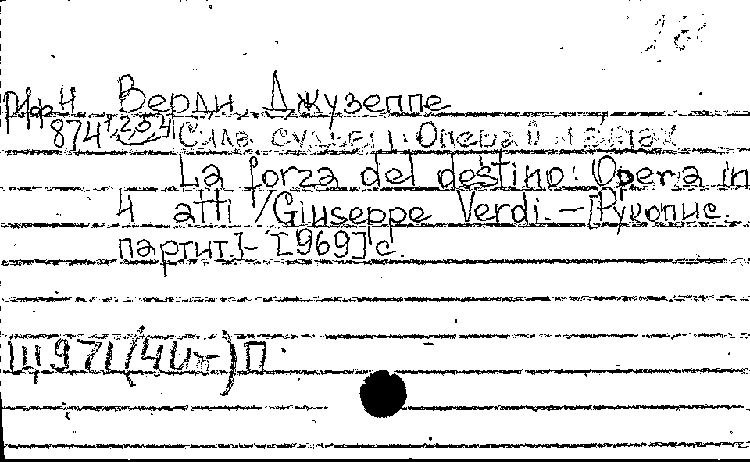 Верди, Джузеппе
874 Сила судьбы: Опера в 4 актах
La forza del destino: Opera in
4 atti / Giuseppe Verdi. - [Рукопис.
партит.] - [969] с.
Щ971(4Ит)П